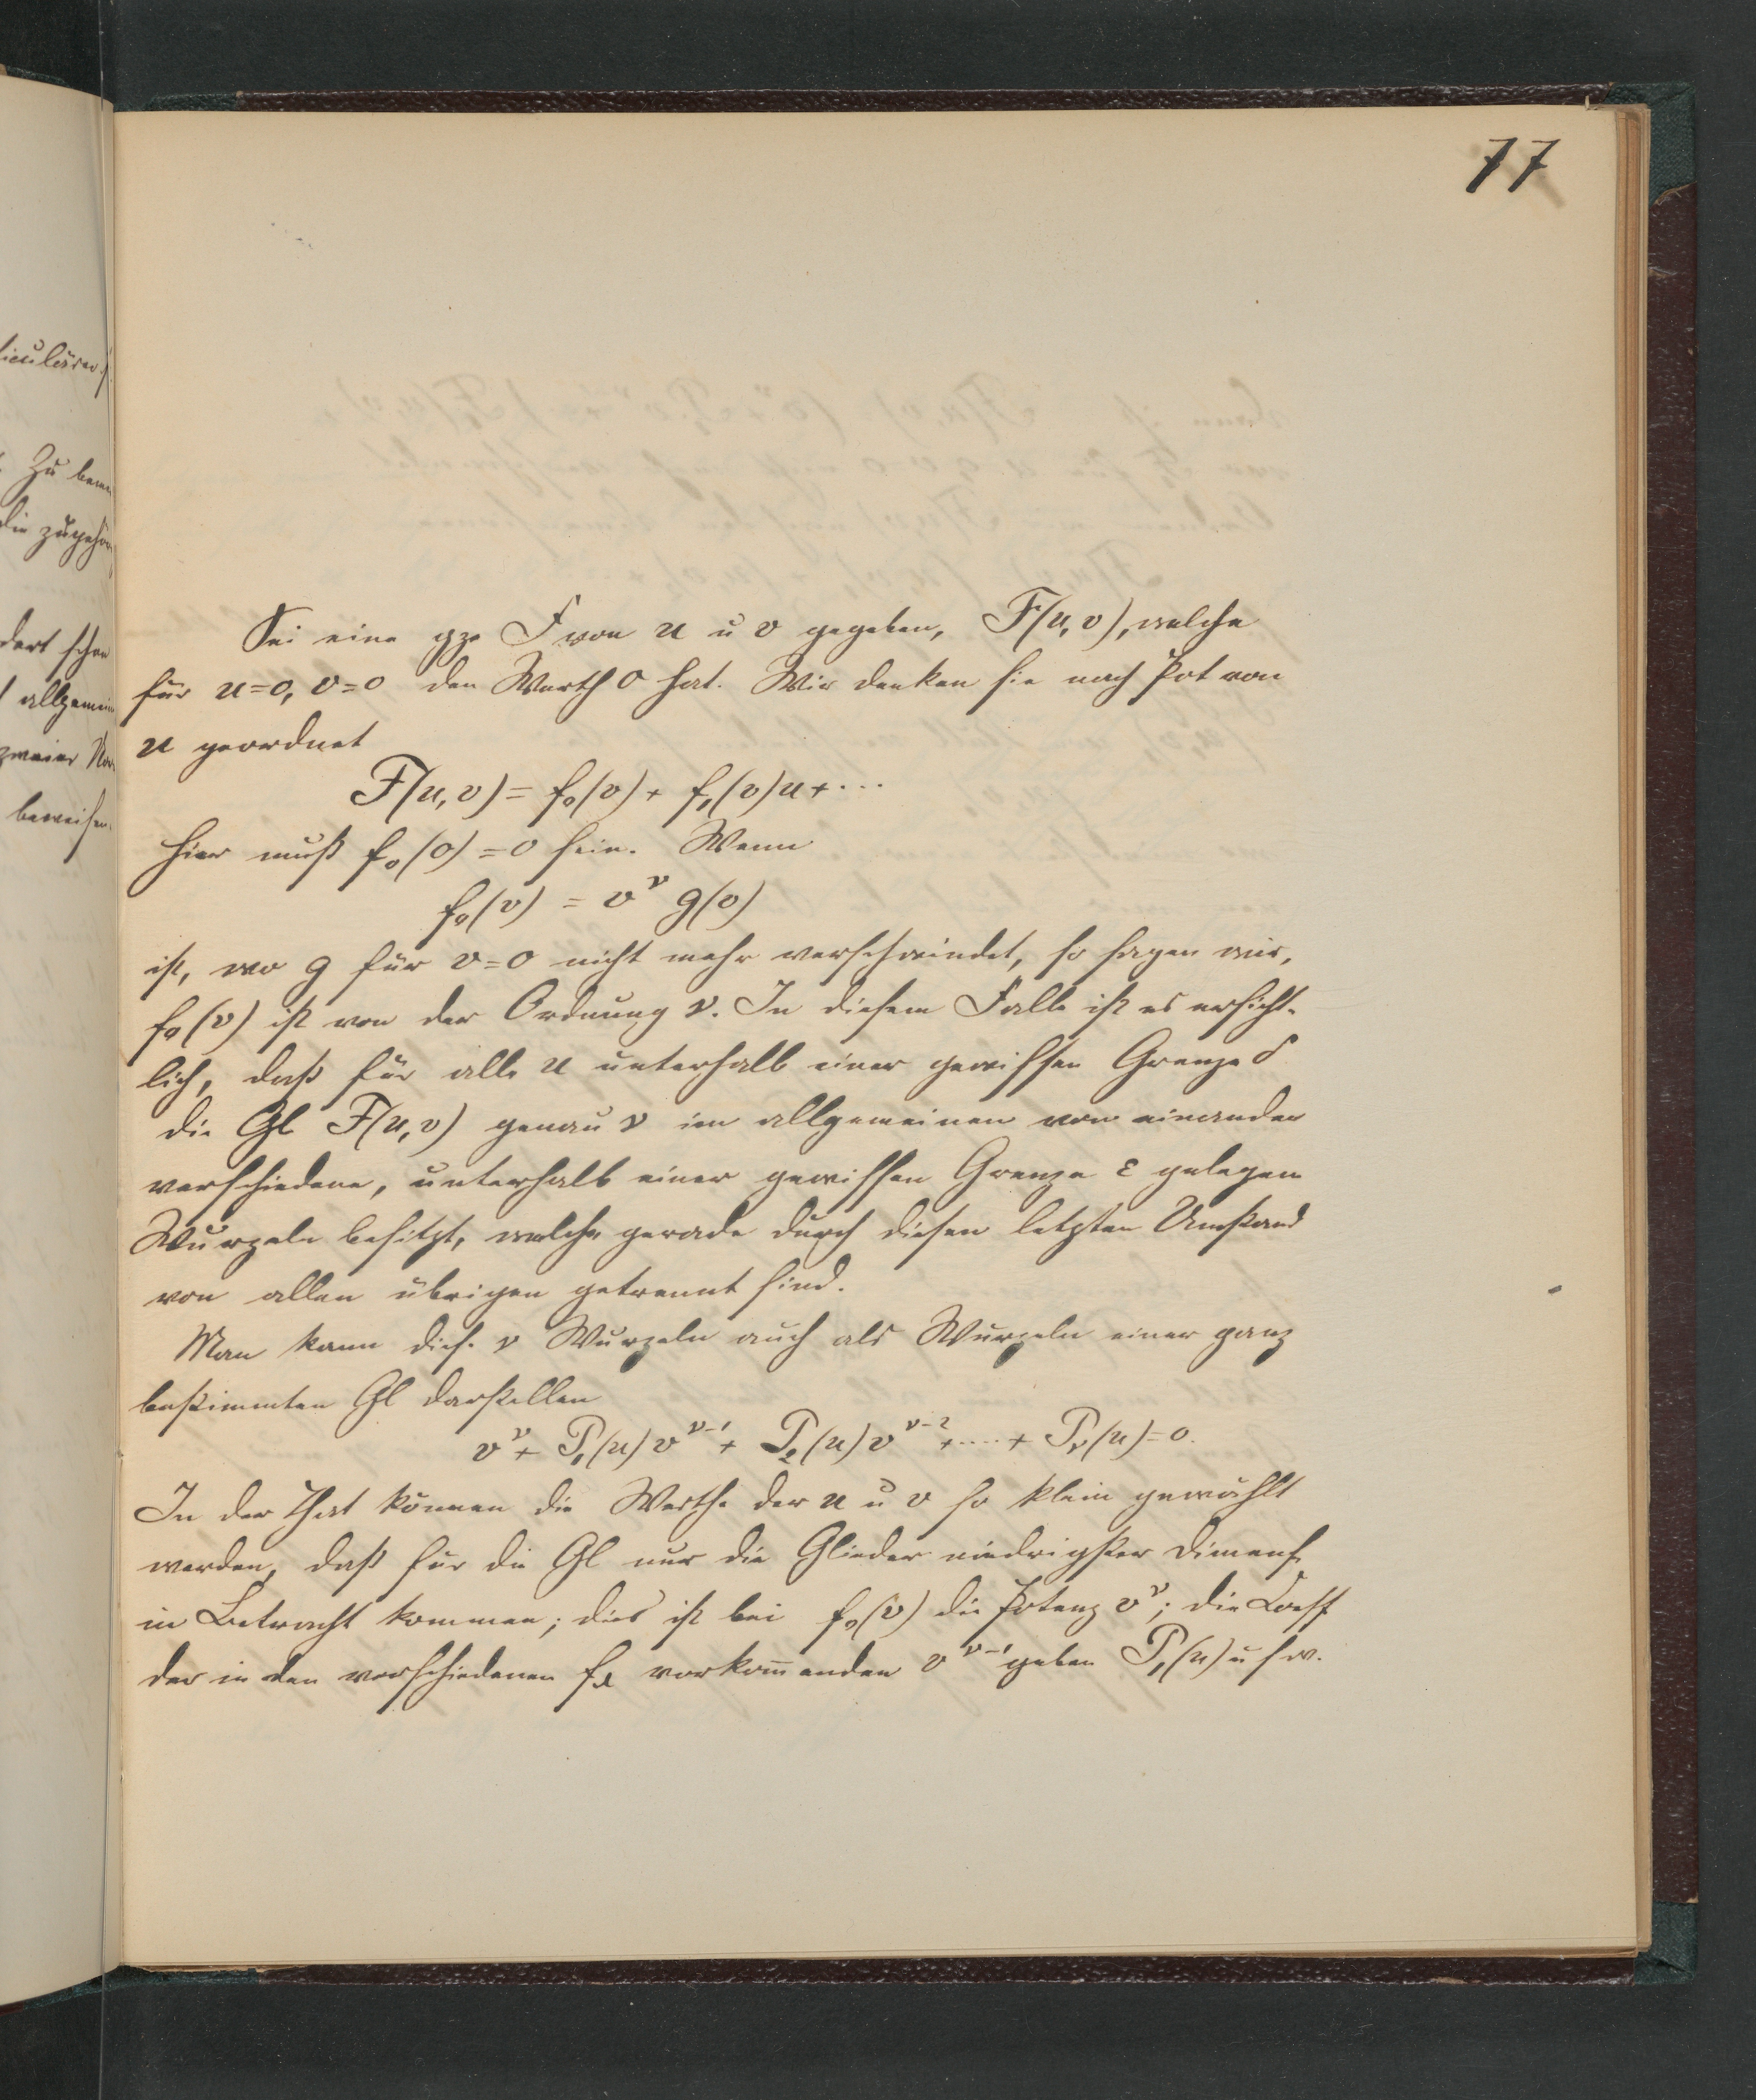 77
iculären
Zu bem
die zugehör
dort schon
allgemein
zweier
beweisen.
Sei eine gze F von u u v gegeben, F(u,v), welche
für u=0, v=0 den Werth 0 hat. Wir denken sie nach Pot von
u geordnet
F(u,v) = f₀(v) + f₁(v)u + ...
hier muß f₀(0) = 0 sein. Wenn
f₀(v) = v^ν g(v)
ist, wo g für v=0 nicht mehr verschwindet, so sagen wir,
f₀(v) ist von der Ordnung ν. In diesem Falle ist es ersicht-
lich, daß für alle u unterhalb einer gewissen Grenze δ
die Gl F(u,v) genau ν im allgemeinen von einander
verschiedene, unterhalb einer gewissen Grenze ε gelegen
Wurzeln besitzt, welche gerade durch diesen letzten Umstand
von allen übrigen getrennt sind.
Man kann dies. ν Wurzeln auch als Wurzeln einer ganz
bestimmten Gl darstellen
v^ν + P₁(u) v^{ν-1} + P₂(u) v^{ν-2} + .... + P_ν(u) = 0.
In der That können die Werthe der u u v so klein gewählt
werden, daß für die Gl nur die Glieder niedrigster Dimens.
in Betracht kommen; dies ist bei f₀(v) die Potenz v^ν; die Coeff
der in den verschiedenen f_λ vorkom̅enden v^{ν-1} geben P₁(u) u s w.